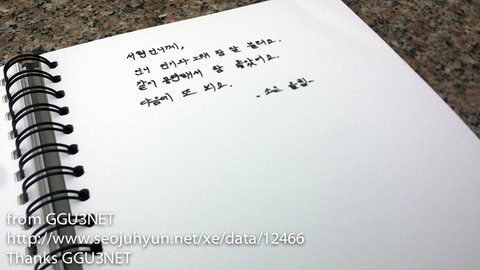 서현언니께,
언니 연기와 노래 참 잘 들려요.
같이 공연해서 참 좋았어요.
다음에 또 봐요. -소은 올림-
from GGU3NET
http://www.seojuhyun.net/xe/data/12466
Thanks GGU3NET